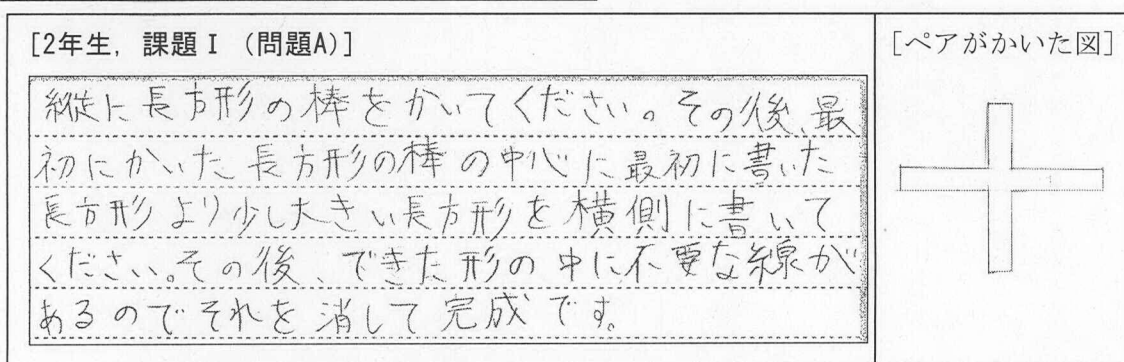 [2年生, 課題Ⅰ (問題A)]
縦に長方形の棒をかいてください。その後、最
初にかいた長方形の棒の中心に最初に書いた
長方形より少し大きい長方形を横側に書いて
ください。その後、できた形の中に不要な線が
あるのでそれを消して完成です。
[ペアがかいた図]